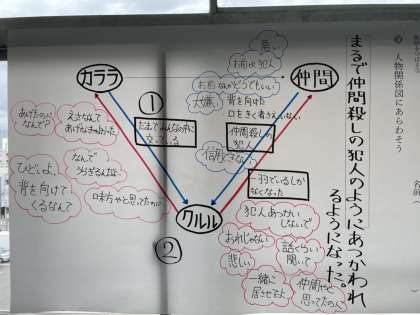 人物関係図にあらわそう
名前（　　）
まるで仲間殺しの犯人のようにあつかわれ
るようになった。
カララ
仲間
クルル
①
②
悪
お前は犯人
お前なかどうでもいい
大嫌い
背を向けた
口をきく者さえいない
仲間殺しの
犯人
信用できない
一羽でいるしか
なくなった
犯人あつかい
しないで
おれじゃない
悲しい
話くらい
聞いて
一緒に
居させてよ
仲間やと
思ってたのに
あげたの人
なんで？
えさなんて
あげんきゃよかった
ひどいよ
背を向けて
くるなんて
なんで
うらぎるんだよ
味方やと思ってたのに